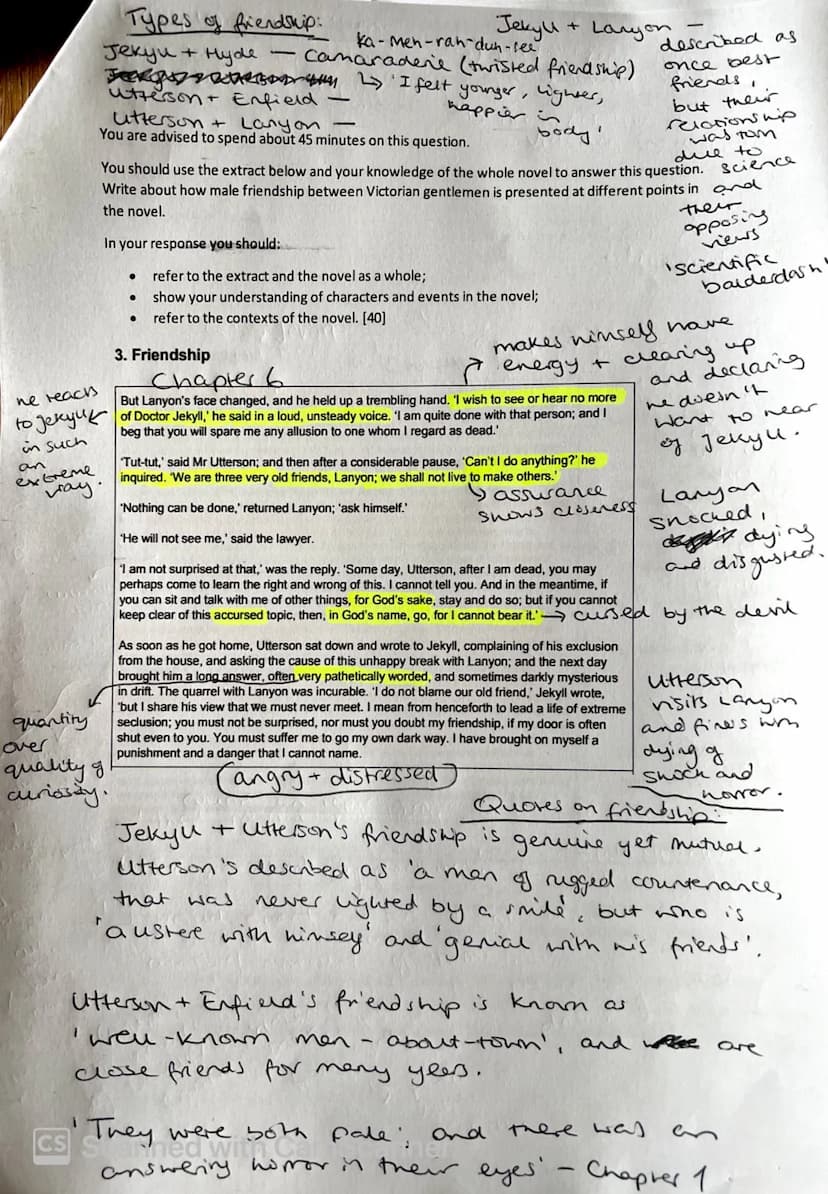 Types of friendship:
Jekyll + Hyde — Camaraderie (twisted friendship)
ka-meh-rah-duh-ree
↳ 'I felt younger, lighter,
happier in
body'
Utterson + Enfield —
Utterson + Lanyon —
Jekyll + Lanyon —
described as
once best
friends,
but their
relationship
was torn
due to
science
and
their
opposing
views
'scientific
balderdash'
You are advised to spend about 45 minutes on this question.
You should use the extract below and your knowledge of the whole novel to answer this question.
Write about how male friendship between Victorian gentlemen is presented at different points in
the novel.
In your response you should:
• refer to the extract and the novel as a whole;
• show your understanding of characters and events in the novel;
• refer to the contexts of the novel. [40]
3. Friendship
Chapter 6
makes himself have
energy + clearing up
and declaring
he doesn't
want to hear
of Jekyll.
he reacts
to Jekyll
in such
an
extreme
way.
But Lanyon's face changed, and he held up a trembling hand. 'I wish to see or hear no more
of Doctor Jekyll,' he said in a loud, unsteady voice. 'I am quite done with that person; and I
beg that you will spare me any allusion to one whom I regard as dead.'
'Tut-tut,' said Mr Utterson; and then after a considerable pause, 'Can't I do anything?' he
inquired. 'We are three very old friends, Lanyon; we shall not live to make others.'
↳ assurance
shows closeness
'Nothing can be done,' returned Lanyon; 'ask himself.'
'He will not see me,' said the lawyer.
Lanyon
shocked,
dying
and disgusted.
'I am not surprised at that,' was the reply. 'Some day, Utterson, after I am dead, you may
perhaps come to learn the right and wrong of this. I cannot tell you. And in the meantime, if
you can sit and talk with me of other things, for God's sake, stay and do so; but if you cannot
keep clear of this accursed topic, then, in God's name, go, for I cannot bear it.'
→ cursed by the devil
As soon as he got home, Utterson sat down and wrote to Jekyll, complaining of his exclusion
from the house, and asking the cause of this unhappy break with Lanyon; and the next day
brought him a long answer, often very pathetically worded, and sometimes darkly mysterious
in drift. The quarrel with Lanyon was incurable. 'I do not blame our old friend,' Jekyll wrote,
'but I share his view that we must never meet. I mean from henceforth to lead a life of extreme
seclusion; you must not be surprised, nor must you doubt my friendship, if my door is often
shut even to you. You must suffer me to go my own dark way. I have brought on myself a
punishment and a danger that I cannot name.
quantity
over
quality of
curiosity.
Utterson
visits Lanyon
and finds him
dying of
shock and
horror.
angry + distressed
Quotes on friendship:
Jekyll + Utterson's friendship is genuine yet mutual.
Utterson's described as 'a man of rugged countenance,
that was never lighted by a smile', but who is
'austere with himself' and 'genial with his friends'.
Utterson + Enfield's friendship is known as
'well-known men-about-town', and are
close friends for many years.
'They were both pale; and there was an
answering horror in their eyes' - Chapter 1
CS Scanned with